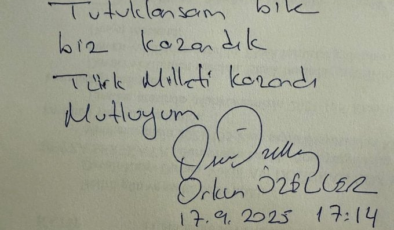 Tutuklansam bile
biz kazandık
Türk Milleti kazandı
Mutluyum
Orkun ÖZELLER
17.9.2025 17:14